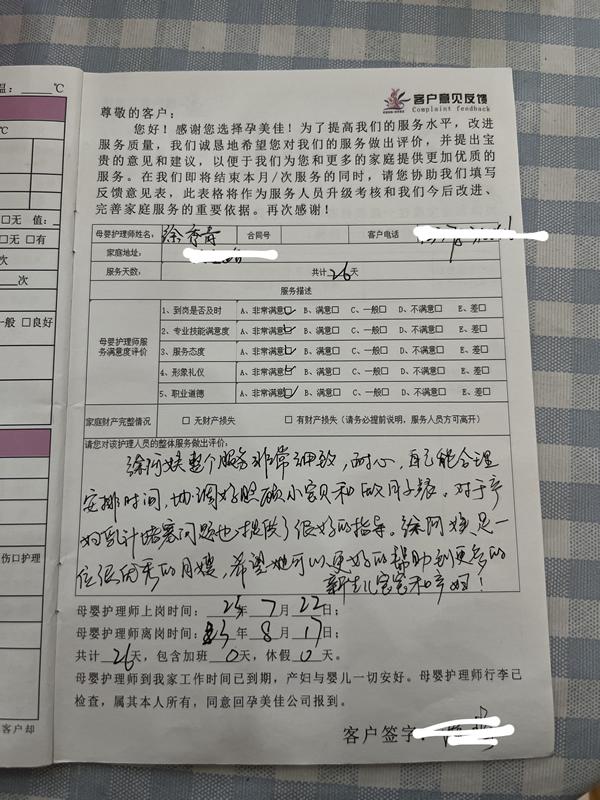 温：____℃
℃
□无 值：_
□无 □有
次
___次
一般 □良好
伤口护理
客户却
客户意见反馈
Complaint feedback
尊敬的客户：
您好！感谢您选择孕美佳！为了提高我们的服务水平，改进
服务质量，我们诚恳地希望您对我们的服务做出评价，并提出宝
贵的意见和建议，以便于我们为您和更多的家庭提供更加优质的
服务。在我们即将结束本月/次服务的同时，请您协助我们填写
反馈意见表，此表格将作为服务人员升级考核和我们今后改进、
完善家庭服务的重要依据。再次感谢！
母婴护理师姓名： 徐秀青 合同号 客户电话
家庭地址：
服务天数： 共计26天
服务描述
母婴护理师服
务满意度评价
1、到岗是否及时 A、非常满意☑ B、满意□ C、一般□ D、不满意□ E、差□
2、专业技能满意度 A、非常满意☑ B、满意□ C、一般□ D、不满意□ E、差□
3、服务态度 A、非常满意☑ B、满意□ C、一般□ D、不满意□ E、差□
4、形象礼仪 A、非常满意☑ B、满意□ C、一般□ D、不满意□ E、差□
5、职业道德 A、非常满意☑ B、满意□ C、一般□ D、不满意□ E、差□
家庭财产完整情况 □ 无财产损失 □ 有财产损失（请务必提前说明，服务人员方可离开）
请您对该护理人员的整体服务做出评价：
徐阿姨整个服务非常细致，耐心，自己能合理
安排时间，协调好照顾小宝贝和做月子餐。对于产
妇乳汁堵塞问题也提供了很好的指导。徐阿姨是一
位很优秀的月嫂，希望她可以更好的帮助到更多的
新生儿宝宝和产妇！
母婴护理师上岗时间：23年7月22日；
母婴护理师离岗时间：23年8月17日；
共计26天，包含加班0天，休假0天。
母婴护理师到我家工作时间已到期，产妇与婴儿一切安好。母婴护理师行李已
检查，属其本人所有，同意回孕美佳公司报到。
客户签字：